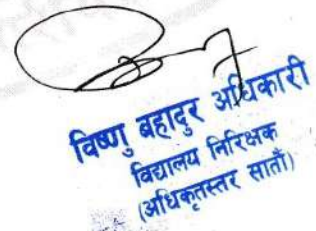 विष्णु बहादुर अधिकारी
विद्यालय निरिक्षक
(अधिकृतस्तर सातौं)